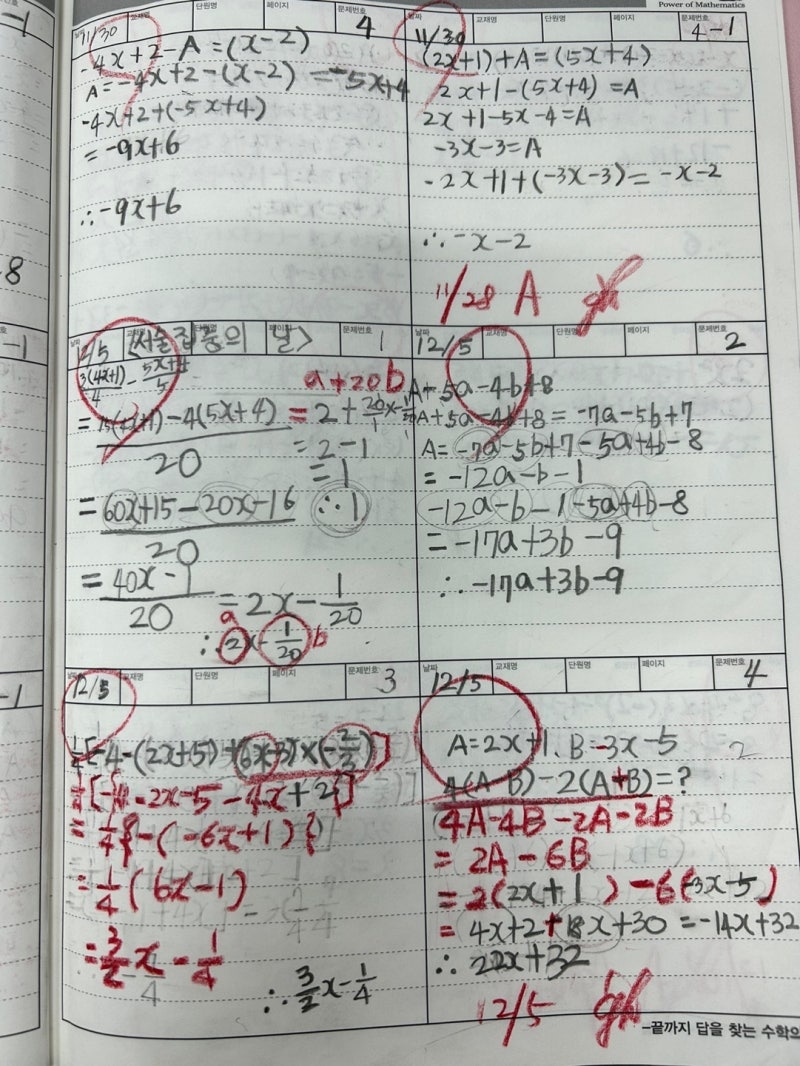 Power of Mathematics
11/30 교재명 단원명 페이지 문제번호 4
-4x+2-A=(x-2)
A=-4x+2-(x-2)=-5x+4
-4x+2+(-5x+4)
=-9x+6
∴-9x+6
날짜 11/30 교재명 단원명 페이지 문제번호 4-1
(2x+1)+A=(5x+4)
2x+1-(5x+4)=A
2x+1-5x-4=A
-3x-3=A
-2x+1+(-3x-3)=-x-2
∴-x-2
11/28 A
날짜 12/5 교재명 단원명 <서술 집중의 날> 페이지 문제번호 1
3(4x+1)/4 - 5x+4/5
a+20b
-4(5x+4)/20 =2+
=2-1
=1
=60x+15-20x-16/20 ∴1
=40x-1/20 =2x-1/20
a b
∴2x-1/20
날짜 12/5 교재명 단원명 페이지 문제번호 2
A+5a-4b+8
A+5a-4b+8=-7a-5b+7
A=-7a-5b+7-5a+4b-8
=-12a-b-1
-12a-b-1-5a+4b-8
=-17a+3b-9
∴-17a+3b-9
12/5 단원명 페이지 문제번호 3
1/4[-4-(2x+5)+(6x-3)×(-2/3)]
-2x-5-4x+2
=1/4{-(-6x+1)}
=1/4(6x-1)
=3/2x-1/4
∴3/2x-1/4
날짜 12/5 교재명 단원명 페이지 문제번호 4
A=2x+1, B=-3x-5
4(A-B)-2(A+B)=?
(4A-4B-2A-2B
=2A-6B
=2(2x+1)-6(-3x-5)
=4x+2+18x+30=-14x+32
∴22x+32
12/5
-끝까지 답을 찾는 수학의